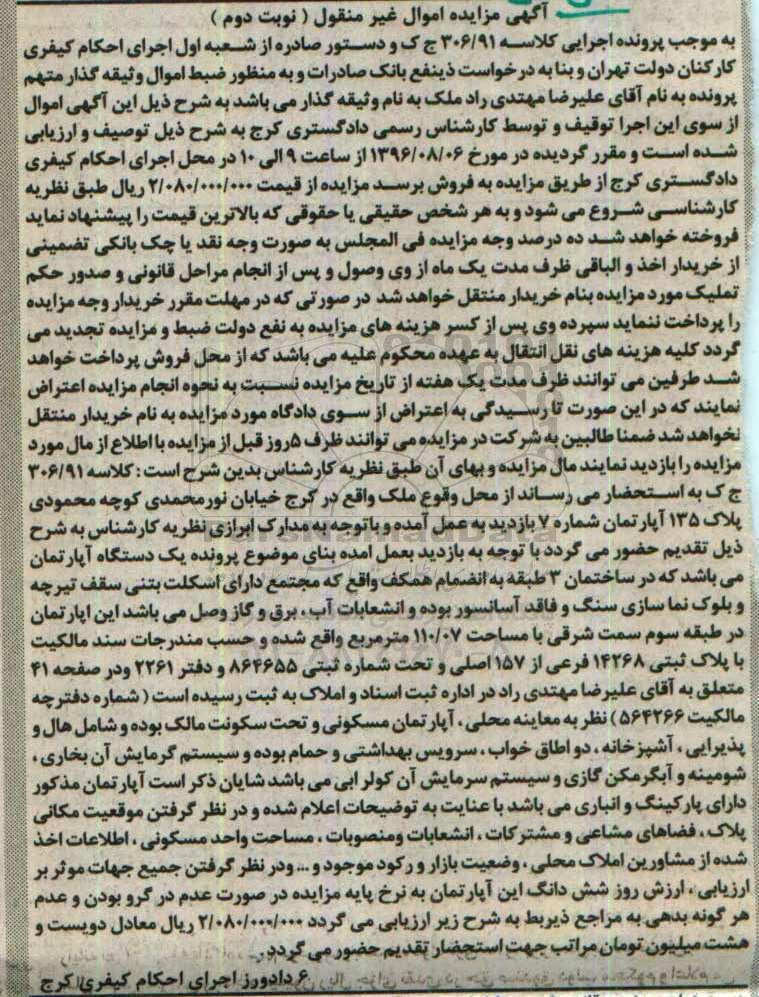 آگهی مزایده اموال غیر منقول ( نوبت دوم )
به موجب پرونده اجرایی کلاسه ۳۰۶/۹۱ ج ک و دستور صادره از شعبه اول اجرای احکام کیفری
کارکنان دولت تهران و بنا به درخواست ذینفع بانک صادرات و به منظور ضبط اموال وثیقه گذار متهم
پرونده به نام آقای علیرضا مهتدی راد ملک به نام وثیقه گذار می باشد به شرح ذیل این آگهی اموال
از سوی این اجرا توقیف و توسط کارشناس رسمی دادگستری کرج به شرح ذیل توصیف و ارزیابی
شده است و مقرر گردیده در مورخ ۱۳۹۶/۰۸/۰۶ از ساعت ۹ الی ۱۰ در محل اجرای احکام کیفری
دادگستری کرج از طریق مزایده به فروش برسد مزایده از قیمت ۲/۰۸۰/۰۰۰/۰۰۰ ریال طبق نظریه
کارشناسی شروع می شود و به هر شخص حقیقی یا حقوقی که بالاترین قیمت را پیشنهاد نماید
فروخته خواهد شد ده درصد وجه مزایده فی المجلس به صورت وجه نقد یا چک بانکی تضمینی
از خریدار اخذ و الباقی ظرف مدت یک ماه از وی وصول و پس از انجام مراحل قانونی و صدور حکم
تملیک مورد مزایده بنام خریدار منتقل خواهد شد در صورتی که در مهلت مقرر خریدار وجه مزایده
را پرداخت ننماید سپرده وی پس از کسر هزینه های مزایده به نفع دولت ضبط و مزایده تجدید می
گردد کلیه هزینه های نقل انتقال به عهده محکوم علیه می باشد که از محل فروش پرداخت خواهد
شد طرفین می توانند ظرف مدت یک هفته از تاریخ مزایده نسبت به نحوه انجام مزایده اعتراض
نمایند که در این صورت تا رسیدگی به اعتراض از سوی دادگاه مورد مزایده به نام خریدار منتقل
نخواهد شد ضمنا طالبین به شرکت در مزایده می توانند ظرف ۵روز قبل از مزایده با اطلاع از مال مورد
مزایده را بازدید نمایند مال مزایده و بهای آن طبق نظریه کارشناس بدین شرح است : کلاسه ۳۰۶/۹۱
ج ک به استحضار می رساند از محل وقوع ملک واقع در کرج خیابان نورمحمدی کوچه محمودی
پلاک ۱۳۵ آپارتمان شماره ۷ بازدید به عمل آمده و باتوجه به مدارک ابرازی نظریه کارشناس به شرح
ذیل تقدیم حضور می گردد با توجه به بازدید بعمل امده بنای موضوع پرونده یک دستگاه آپارتمان
می باشد که در ساختمان ۳ طبقه به انضمام همکف واقع که مجتمع دارای اسکلت بتنی سقف تیرچه
و بلوک نما سازی سنگ و فاقد آسانسور بوده و انشعابات آب ، برق و گاز وصل می باشد این اپارتمان
در طبقه سوم سمت شرقی با مساحت ۱۱۰/۰۷ مترمربع واقع شده و حسب مندرجات سند مالکیت
با پلاک ثبتی ۱۴۲۶۸ فرعی از ۱۵۷ اصلی و تحت شماره ثبتی ۸۶۴۶۵۵ و دفتر ۲۲۶۱ ودر صفحه ۴۱
متعلق به آقای علیرضا مهتدی راد در اداره ثبت اسناد و املاک به ثبت رسیده است ( شماره دفترچه
مالکیت ۵۶۴۲۶۶ ) نظر به معاینه محلی ، آپارتمان مسکونی و تحت سکونت مالک بوده و شامل هال و
پذیرایی ، آشپزخانه ، دو اطاق خواب ، سرویس بهداشتی و حمام بوده و سیستم گرمایش آن بخاری ،
شومینه و آبگرمکن گازی و سیستم سرمایش آن کولر ابی می باشد شایان ذکر است آپارتمان مذکور
دارای پارکینگ و انباری می باشد با عنایت به توضیحات اعلام شده و در نظر گرفتن موقعیت مکانی
پلاک ، فضاهای مشاعی و مشترکات ، انشعابات ومنصوبات ، مساحت واحد مسکونی ، اطلاعات اخذ
شده از مشاورین املاک محلی ، وضعیت بازار و رکود موجود و ... ودر نظر گرفتن جمیع جهات موثر بر
ارزیابی ، ارزش روز شش دانگ این آپارتمان به نرخ پایه مزایده در صورت عدم در گرو بودن و عدم
هر گونه بدهی به مراجع ذیربط به شرح زیر ارزیابی می گردد ۲/۰۸۰/۰۰۰/۰۰۰ ریال معادل دویست و
هشت میلیون تومان مراتب جهت استحضار تقدیم حضور می گردد.
۶ دادورز اجرای احکام کیفری کرج